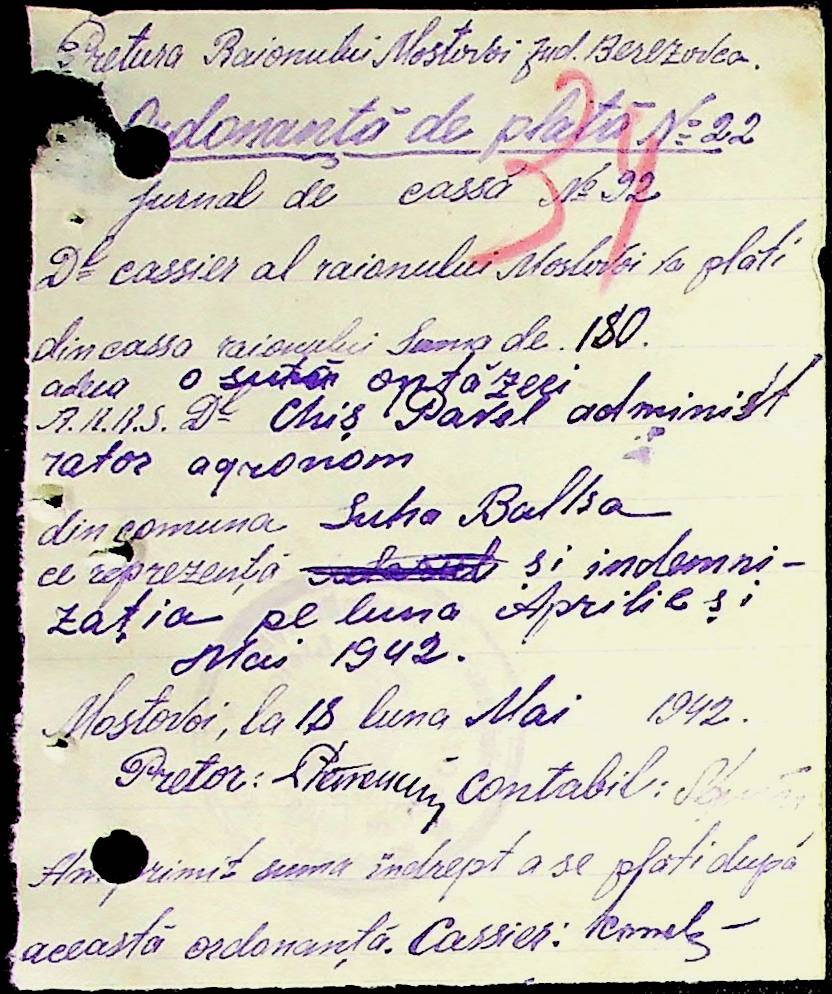 Pretura Raionului Mostovoi jud. Berezovca.
Ordonantă de plată № 22
34
Jurnal de cassă № 92
Dl cassier al raionului Mostovoi va plăti
din cassa raionului suma de 180.
adica o sută optăzeci
R.K.K.S. Dl Chiș Pavel administ
rator agronom
din comuna Suha Balka
ce reprezentă și indemni-
zația pe luna Aprilie și
Mai 1942.
Mostovoi, la 18 luna Mai 1942.
Pretor: contabil:
Am primit suma îndrept a se plati după
această ordonanță. Cassier: